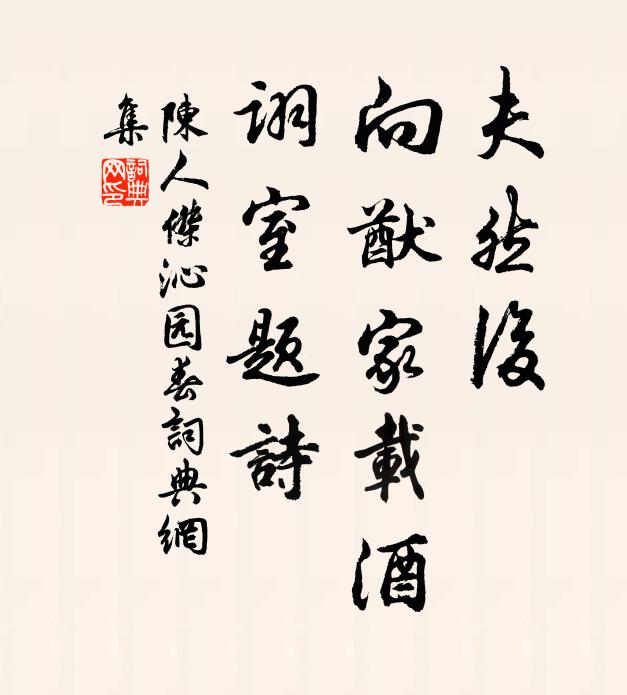 夫然後
向猷家載酒
詡室題詩
陳人傑沁园春詞典網
集
詞典
网印